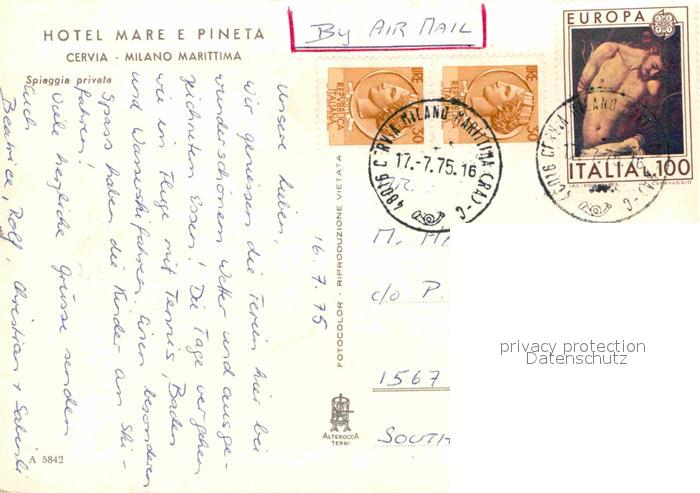 HOTEL MARE E PINETA
CERVIA - MILANO MARITTIMA
Spiaggia privata
By AIR MAIL
LIRE 30
REPUBBLICA ITALIANA
LIRE 30
REPUBBLICA ITALIANA
EUROPA
ITALIA L.100
48016 CERVIA MILANO MARITTIMA (RA) - C
17.-7.75.16
16.7.75
Unsere Lieben,
wir geniessen die Ferien hier bei
wunderschönem Wetter und ausge-
zeichneten Essen! Die Tage vergehen
wie im Fluge mit Tennis, Baden
und Wasserskifahren. Einen besonderen
Spass haben die Kinder am Ski-
fahren!
Viele herzliche Grüsse senden
Euch
Beatrice, Rolf, Christian +
FOTOCOLOR - RIPRODUZIONE VIETATA
ALTEROCCA
TERNI
A 5842
M. 
c/o P.
1567
SOUTH
privacy protection
Datenschutz